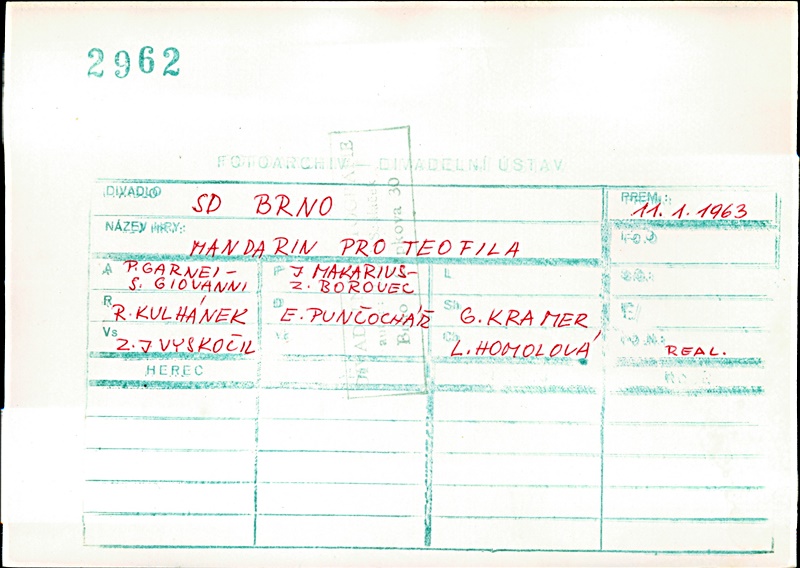 2962
FOTOARCHIV — DIVADELNÍ ÚSTAV
DIVADLO SD BRNO PREM.: 11. 1. 1963
NÁZEV HRY: MANDARIN PRO TEOFILA
A P. GARNEI - S. GIOVANNI
P J MAKARIUS - Z. BOROVEC
L
R R. KULHÁNEK
E. PUNČOCHÁŘ
G. KRAMER
Vs Z. J VYSKOČIL
L. HOMOLOVÁ
REAL.
HEREC